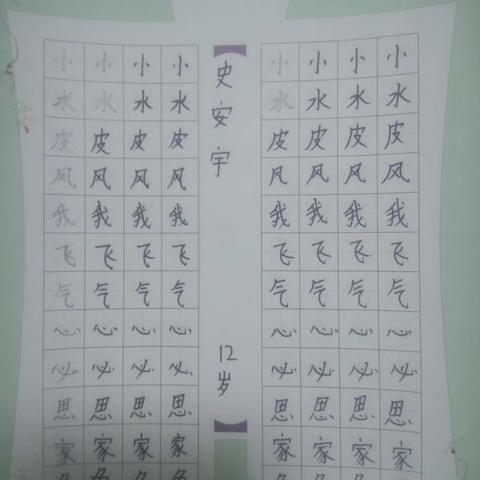 小小小小
水水水水
皮皮皮皮
风风风风
我我我我
飞飞飞飞
气气气气
心心心心
必必必必
思思思思
家家家家
史安宇
12岁
小小小小
水水水水
皮皮皮皮
风风风风
我我我我
飞飞飞飞
气气气气
心心心心
必必必必
思思思思
家家家家